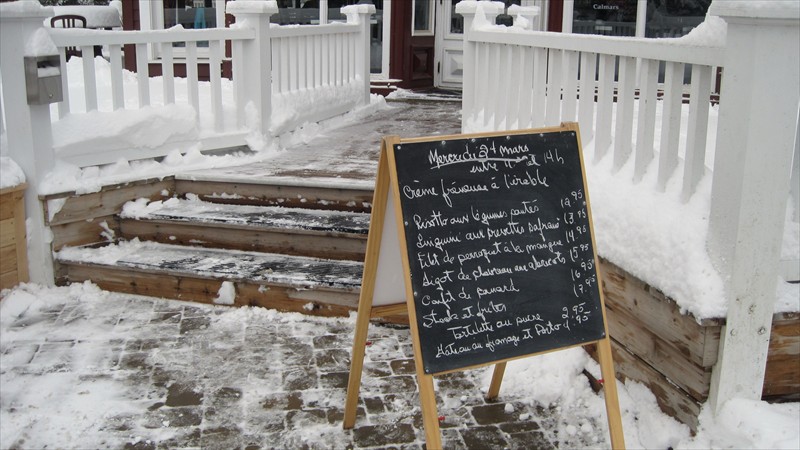 Calmars
Mercredi 24 mars
entre 11 et 14h
Crème frérouse à l'érable
Risotto aux légumes 12.95
Linguini aux crevettes safran 13.95
Filet de perroquet à la mangue 14.95
Gigot de aux abricots 15.95
Confit de canard 16.95
Steak et frites 17.95
Tartelette au sucre 2.95
Gâteau au fromage et Porto 4.95